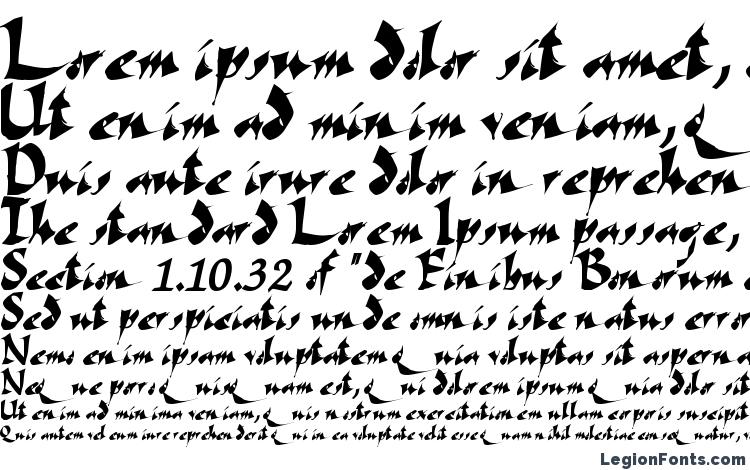 Lorem ipsum dolor sit amet,
Ut enim ad minim veniam, q
Duis aute irure dolor in reprehen
The standard Lorem Ipsum passage,
Section 1.10.32 of "de Finibus Bonorum
Sed ut perspiciatis unde omnis iste natus error
Nemo enim ipsam voluptatem quia voluptas sit asperna
Neque porro quisquam est, qui dolorem ipsum quia dolor sit
Ut enim ad minima veniam, quis nostrum exercitationem ullam corporis suscipit
Quis autem vel eum iure reprehenderit qui in ea voluptate velit esse quam nihil molestiae consequatur, v
LegionFonts.com